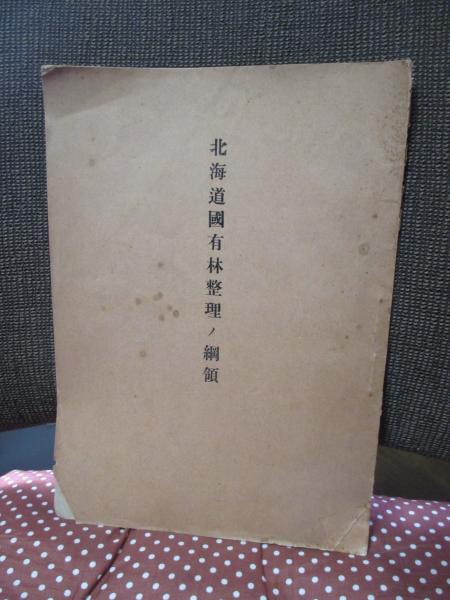 北海道國有林整理ノ綱領